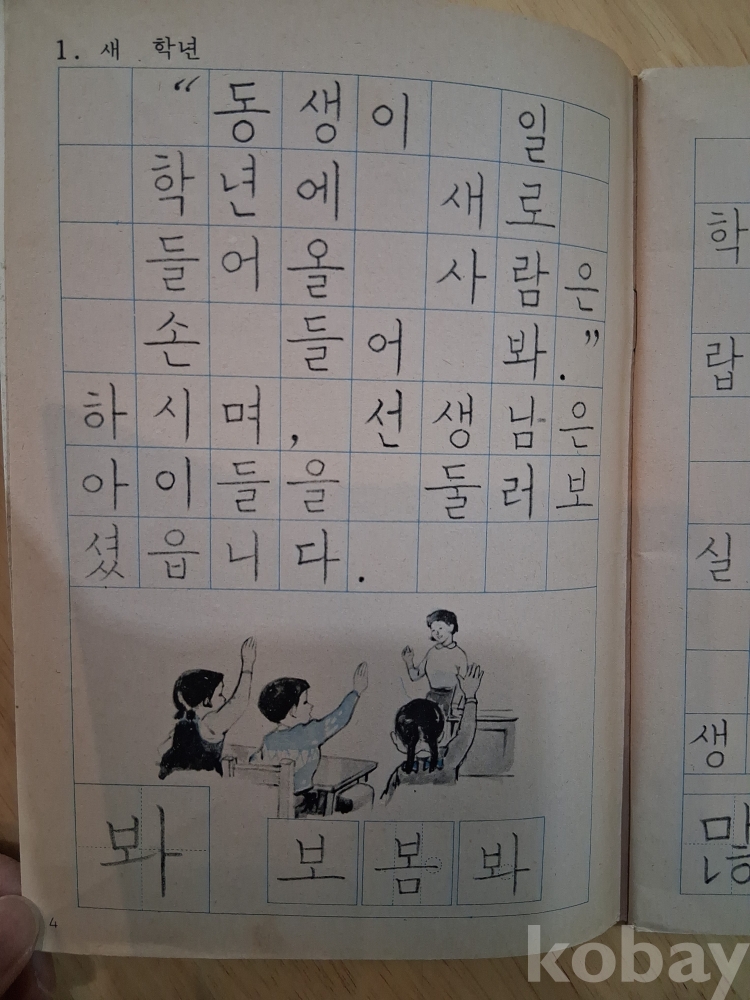 1. 새 학년
“동생이 일
학년에 새로
들어올 사람은
손 들어 봐.”
하시며, 선생남은
아이들을 둘러보
셨읍니다.
봐 보 봄 봐
4
학
랍
실
생
많
kobay